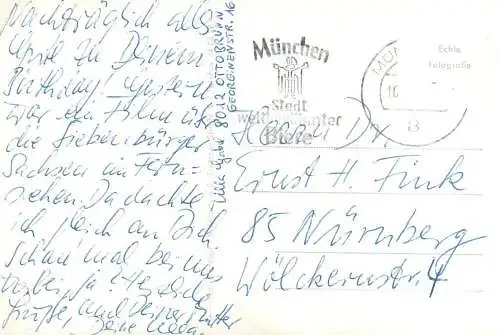 Nachträglich alles
Gute zu Deinem
Birthday! Gestern
war ein Film über
die Siebenbürger
Sachsen im Fern-
sehen. Da dachte
ich gleich an Dich.
Schau mal bei uns
vorbei, ja? Herzliche
Grüße, und Deiner Mutter
Deine
8012 OTTOBRUNN
GEORGINENSTR. 16
München
Stadt
weltberühmter
Biere
MÜN
10.
8
Echte
Fotografie
Herrn Dr.
Ernst H. Fink
85 Nürnberg
Wölckernstr. 4